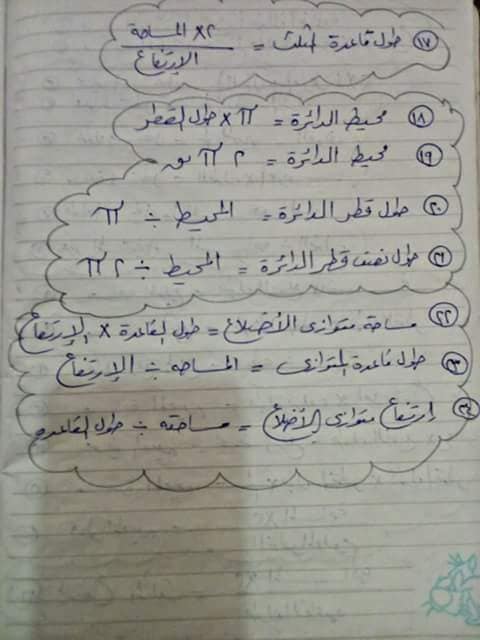 ١٧ طول قاعدة المثلث = ٢ × المساحة / الارتفاع
١٨ محيط الدائرة = π × طول القطر
١٩ محيط الدائرة = ٢ π نق
٢٠ طول قطر الدائرة = المحيط ÷ π
٢١ طول نصف قطر الدائرة = المحيط ÷ ٢ π
٢٢ مساحة متوازى الأضلاع = طول القاعدة × الارتفاع
٢٣ طول قاعدة المتوازى = المساحه ÷ الارتفاع
٢٤ ارتفاع متوازى الأضلاع = مساحته ÷ طول القاعده